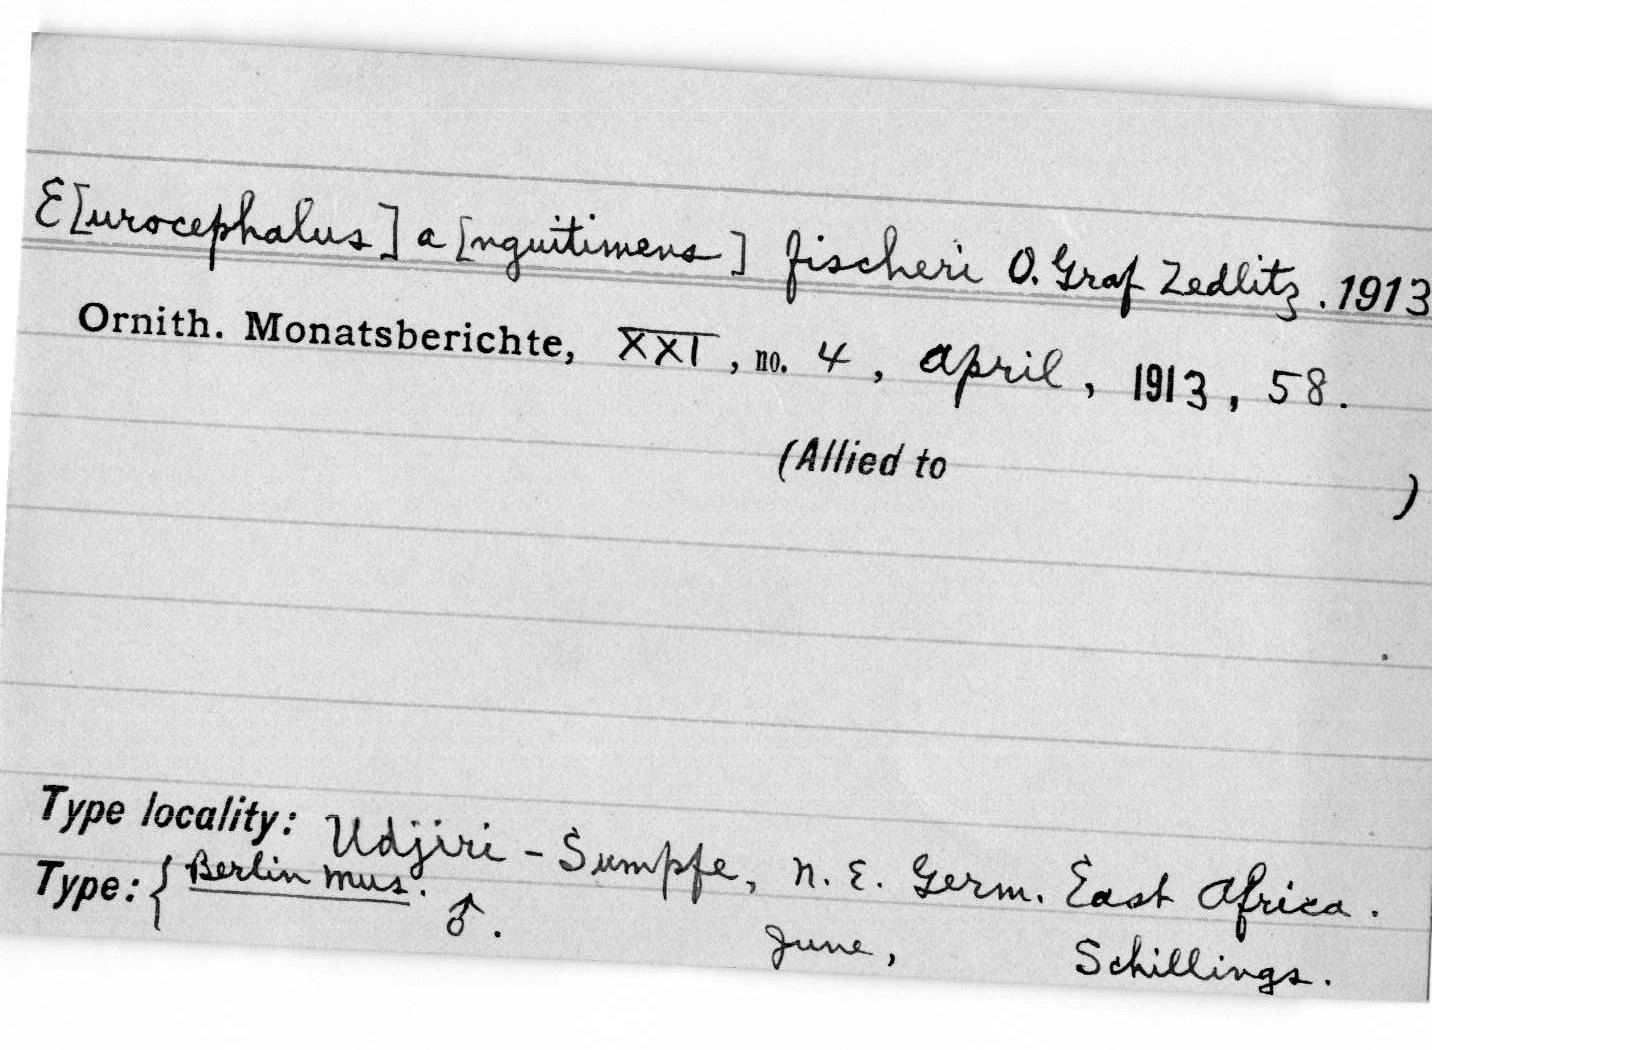 E[urocephalus] a[nguitimens] fischeri O. Graf Zedlitz. 1913
Ornith. Monatsberichte, XXI, no. 4, April, 1913, 58.
(Allied to )
Type locality: Udjiri-Sumpfe, N. E. Germ. East Africa.
Type: { Berlin Mus. ♂. June, Schillings.